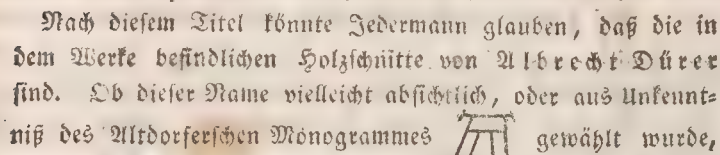 Nach dieſem Titel könnte Jedermann glauben, daß die in
dem Werke befindlichen Holzſchnitte von Albrecht Dürer
ſind. Ob dieſer Name vielleicht abſichtlich, oder aus Unkennt⸗
niß des Altdorferſchen Monogrammes gewählt wurde,